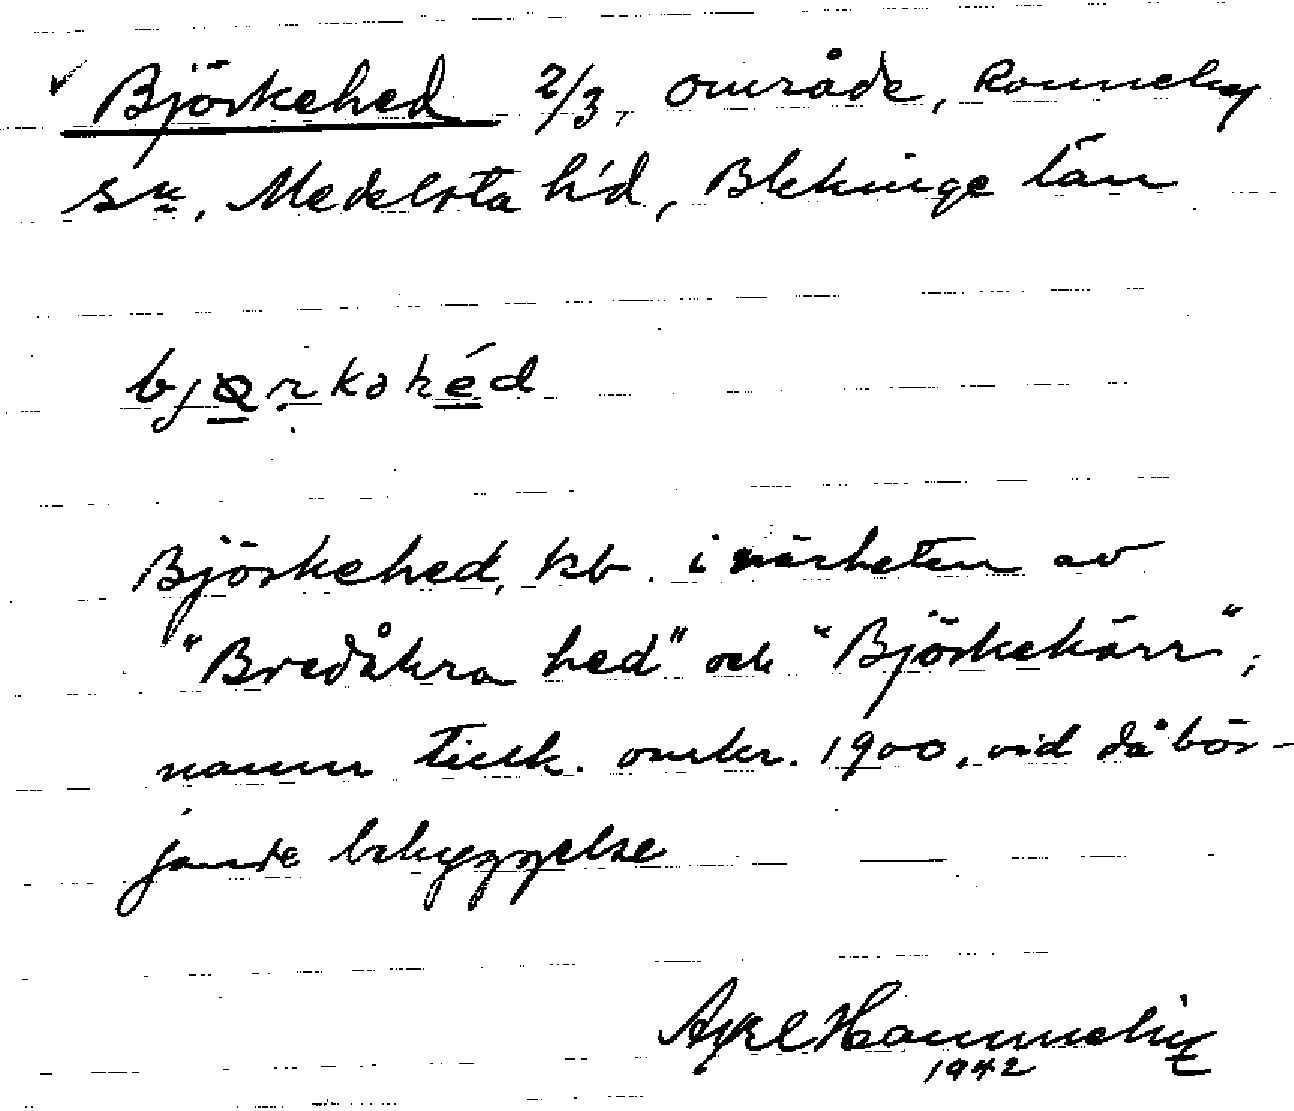 Björkehed 2/3, område, Ronneby
sn, Medelsta hd, Blekinge län
bjørkəhéd
Björkehed, kb. i närheten av
"Bredåkra hed" och "Björkekärr",
namn tillk. omkr. 1900, vid då bör-
jande bebyggelse
Axel
1942